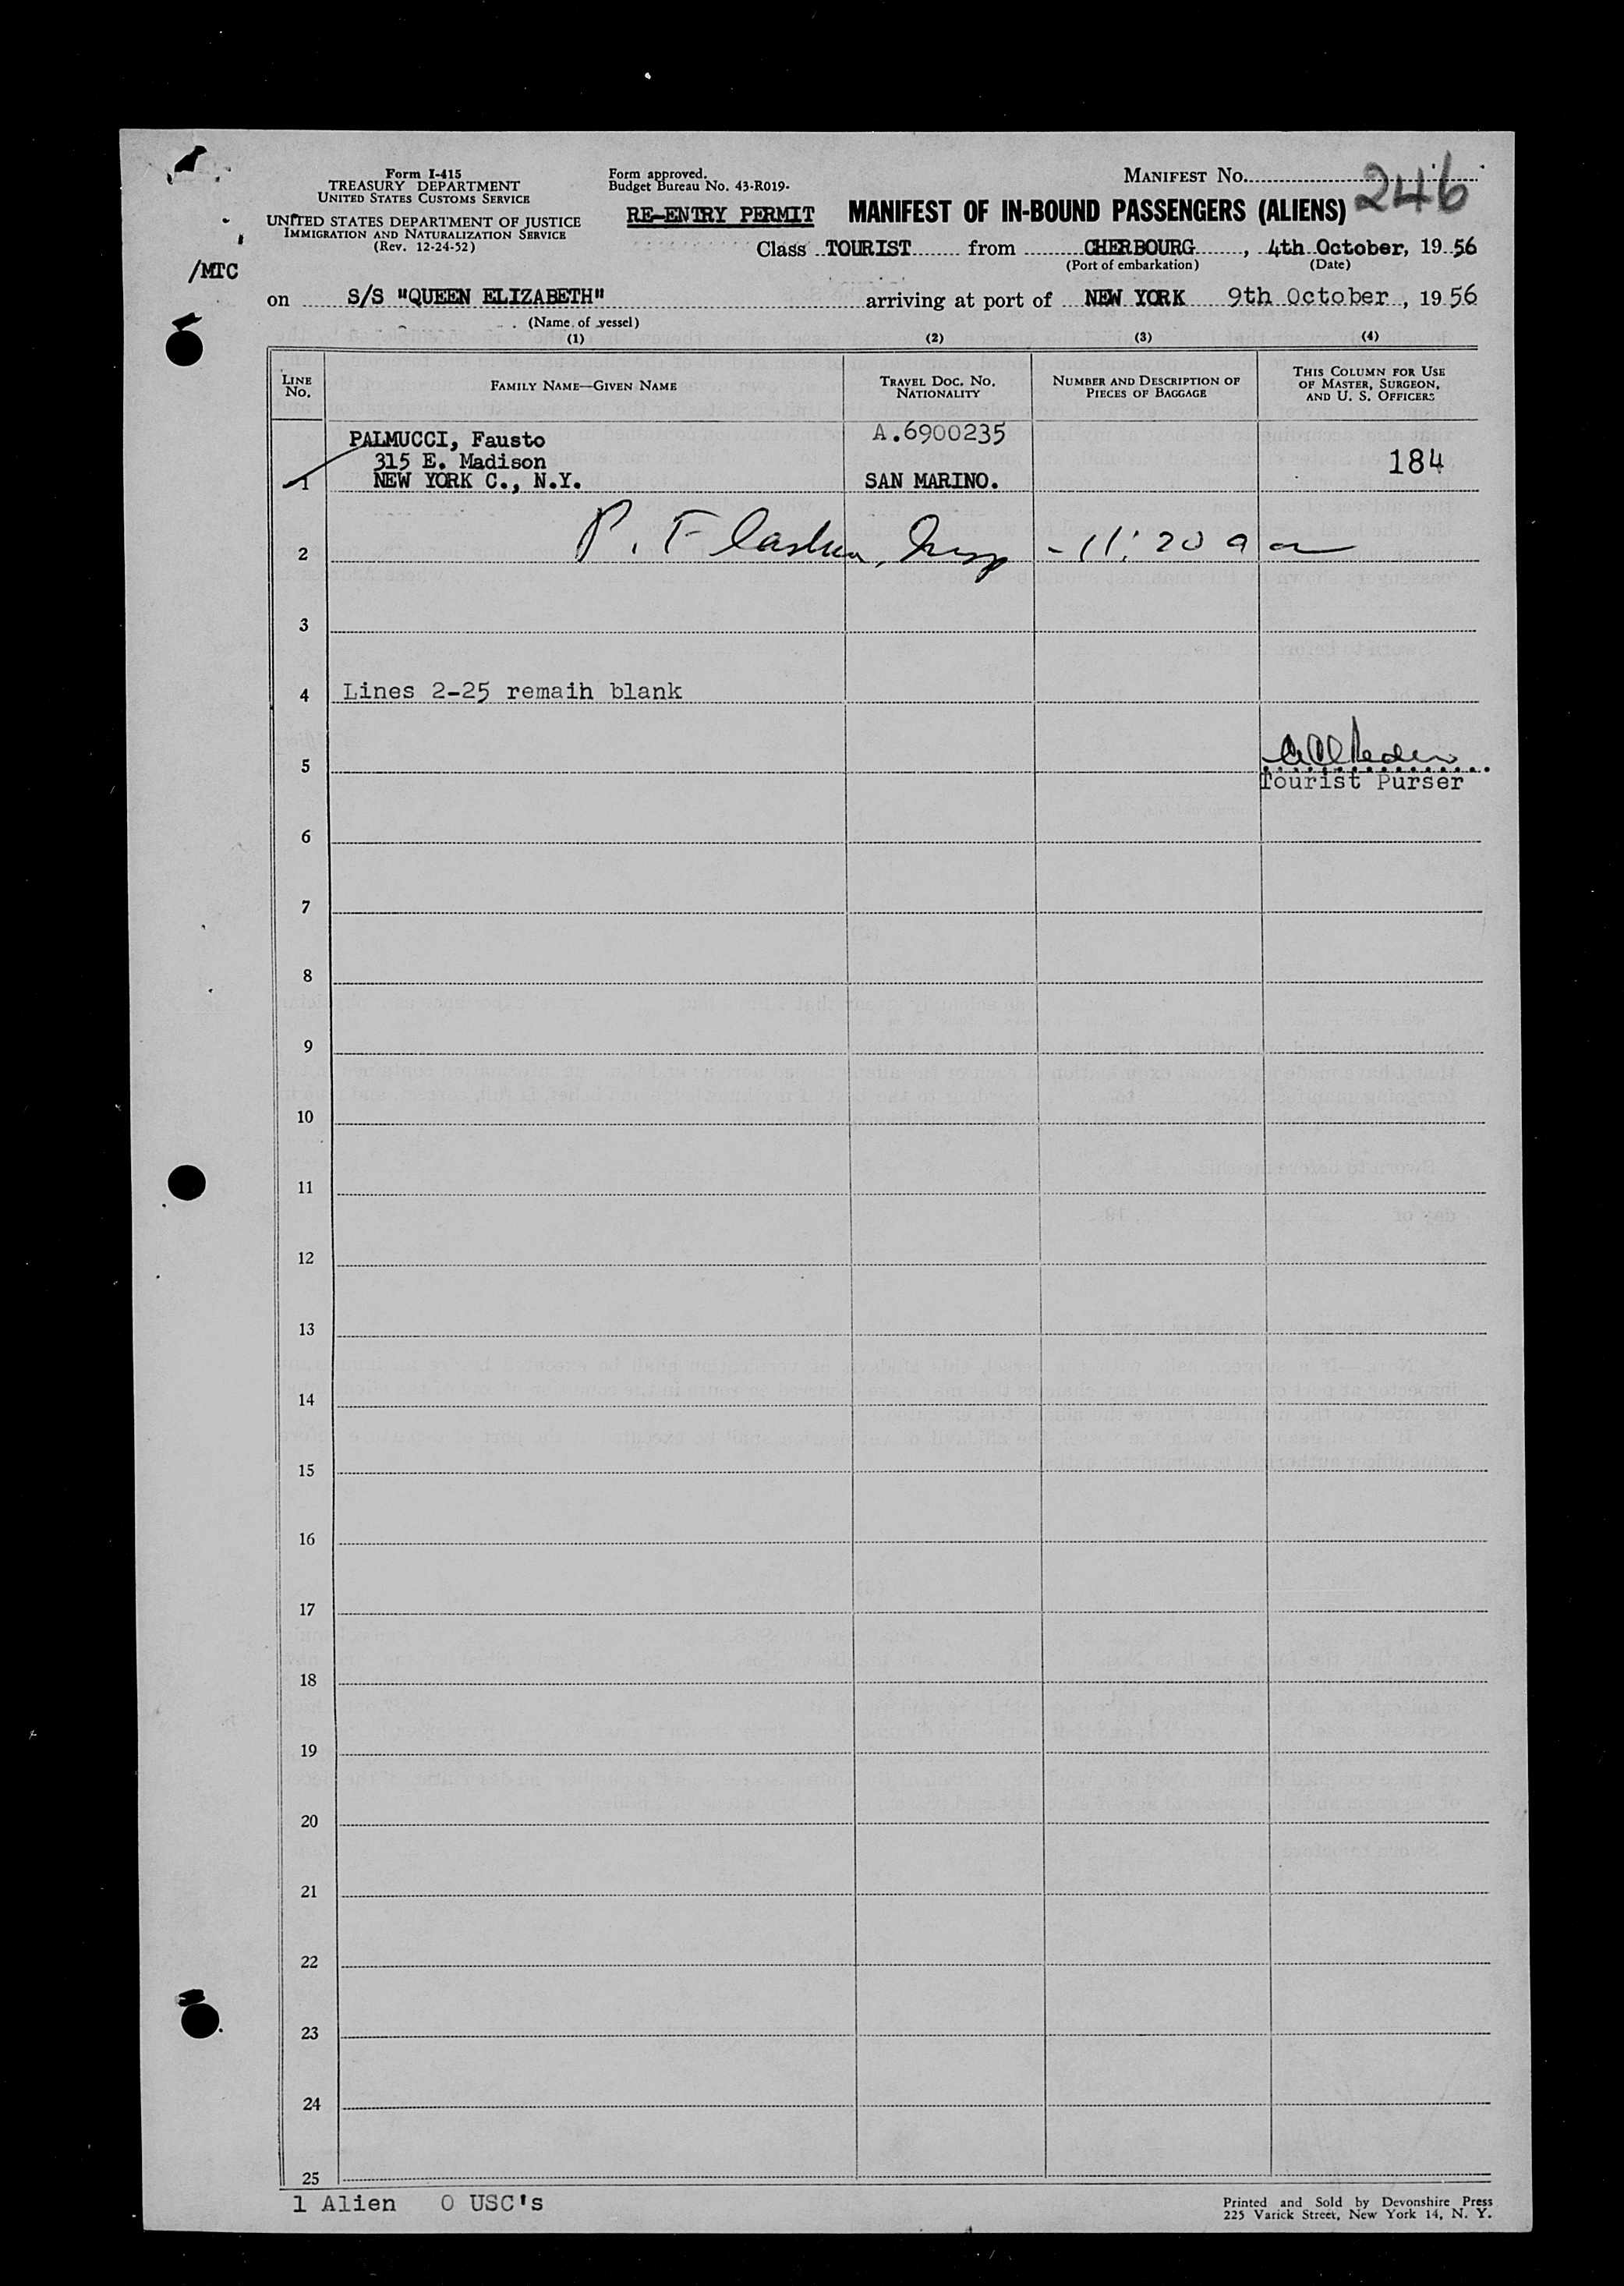 Form I-415
TREASURY DEPARTMENT
UNITED STATES CUSTOMS SERVICE
UNITED STATES DEPARTMENT OF JUSTICE
IMMIGRATION AND NATURALIZATION SERVICE
(Rev. 12-24-52)
/MTC
Form approved.
Budget Bureau No. 43-R019-
MANIFEST NO. 246
RE-ENTRY PERMIT MANIFEST OF IN-BOUND PASSENGERS (ALIENS)
Class TOURIST from CHERBOURG, 4th October, 19 56
(Port of embarkation) (Date)
on S/S "QUEEN ELIZABETH" arriving at port of NEW YORK 9th October, 19 56
(Name of vessel)
(1) (2) (3) (4)
LINE NO. FAMILY NAME—GIVEN NAME TRAVEL DOC. NO. NATIONALITY NUMBER AND DESCRIPTION OF PIECES OF BAGGAGE THIS COLUMN FOR USE OF MASTER, SURGEON, AND U. S. OFFICERS
PALMUCCI, Fausto A.6900235
315 E. Madison 184
1 NEW YORK C., N.Y. SAN MARINO.
2 P. - 11:20 a
3
4 Lines 2-25 remaih blank
5
Tourist Purser
6
7
8
9
10
11
12
13
14
15
16
17
18
19
20
21
22
23
24
25
1 Alien 0 USC's
Printed and Sold by Devonshire Press
225 Varick Street, New York 14, N. Y.